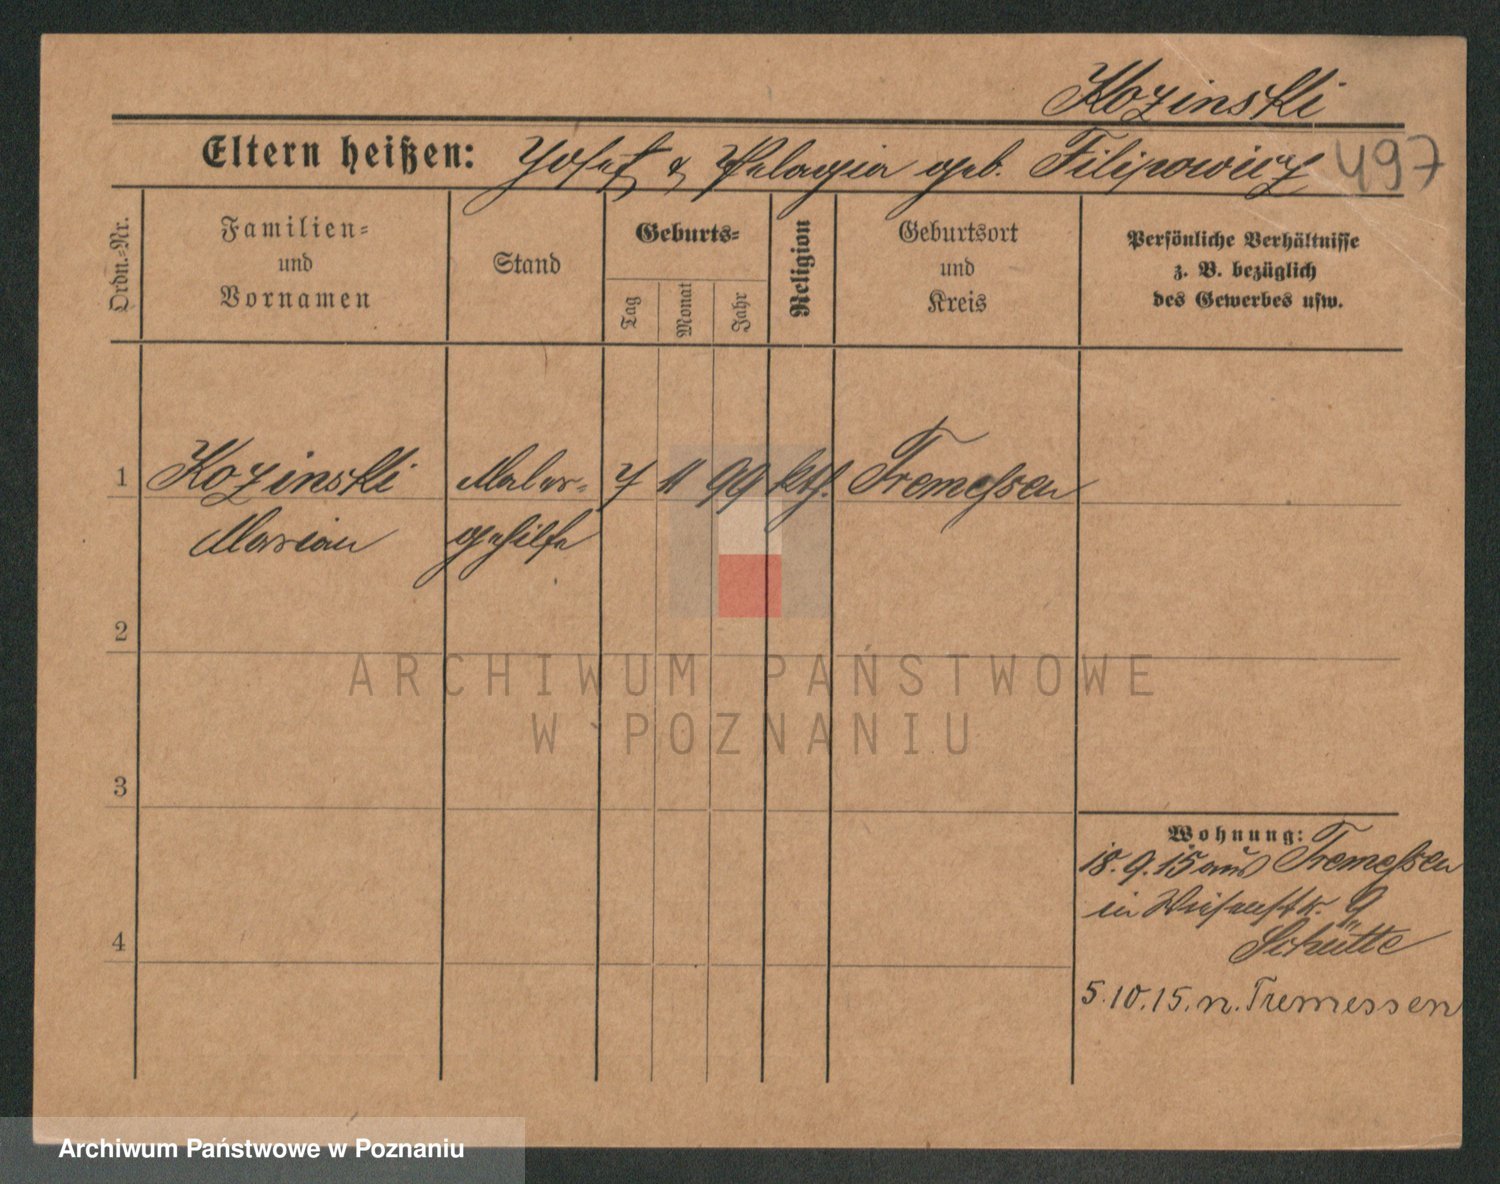 Kozinski
Eltern heißen: Josef & Pelagia geb. Filipowicz 497
Ordn.-Nr.
Familien- und Vornamen
Stand
Geburts-
Tag
Monat
Jahr
Religion
Geburtsort und Kreis
Persönliche Verhältnisse
z. B. bezüglich
des Gewerbes usw.
1 Kozinski Maler- 7 11 99 kth. Tremessen
Marian gehilfe
2
ARCHIWUM PAŃSTWOWE
W POZNANIU
3
Wohnung:
18.9.15 aus Tremessen
in Wiesenstr. 9
Schütte
4
5.10.15. n. Tremessen
Archiwum Państwowe w Poznaniu